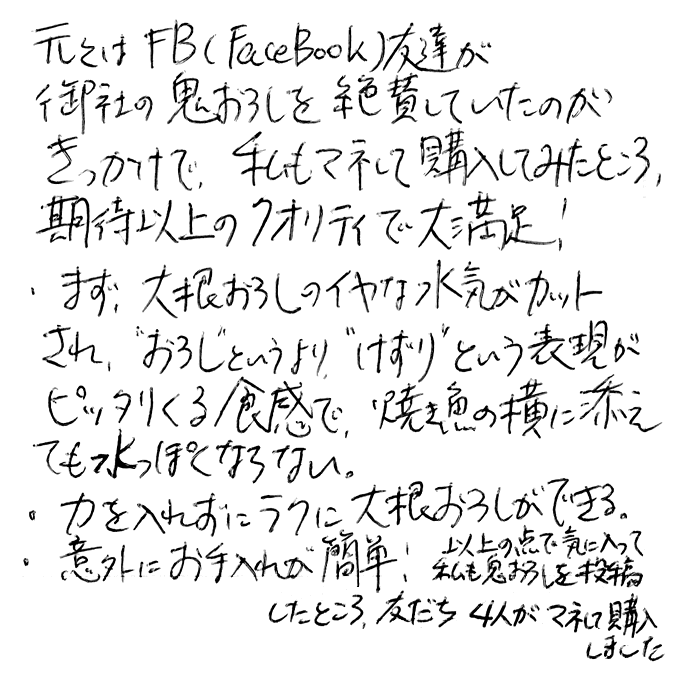 元々は FB(FaceBook)友達が
御社の鬼おろしを絶賛していたのが
きっかけで、私もマネして購入してみたところ、
期待以上のクオリティで大満足!
・まず、大根おろしのイヤな水気がカット
され、"おろし"というより、"けずり"という表現が
ピッタリくる食感で、焼き魚の横に添え
ても水っぽくならない。
・力を入れずにラクに大根おろしができる。
・意外にお手入れが簡単!
以上の点で気に入って
私も鬼おろしを投稿
したところ、友だち 4人がマネして購入
しました